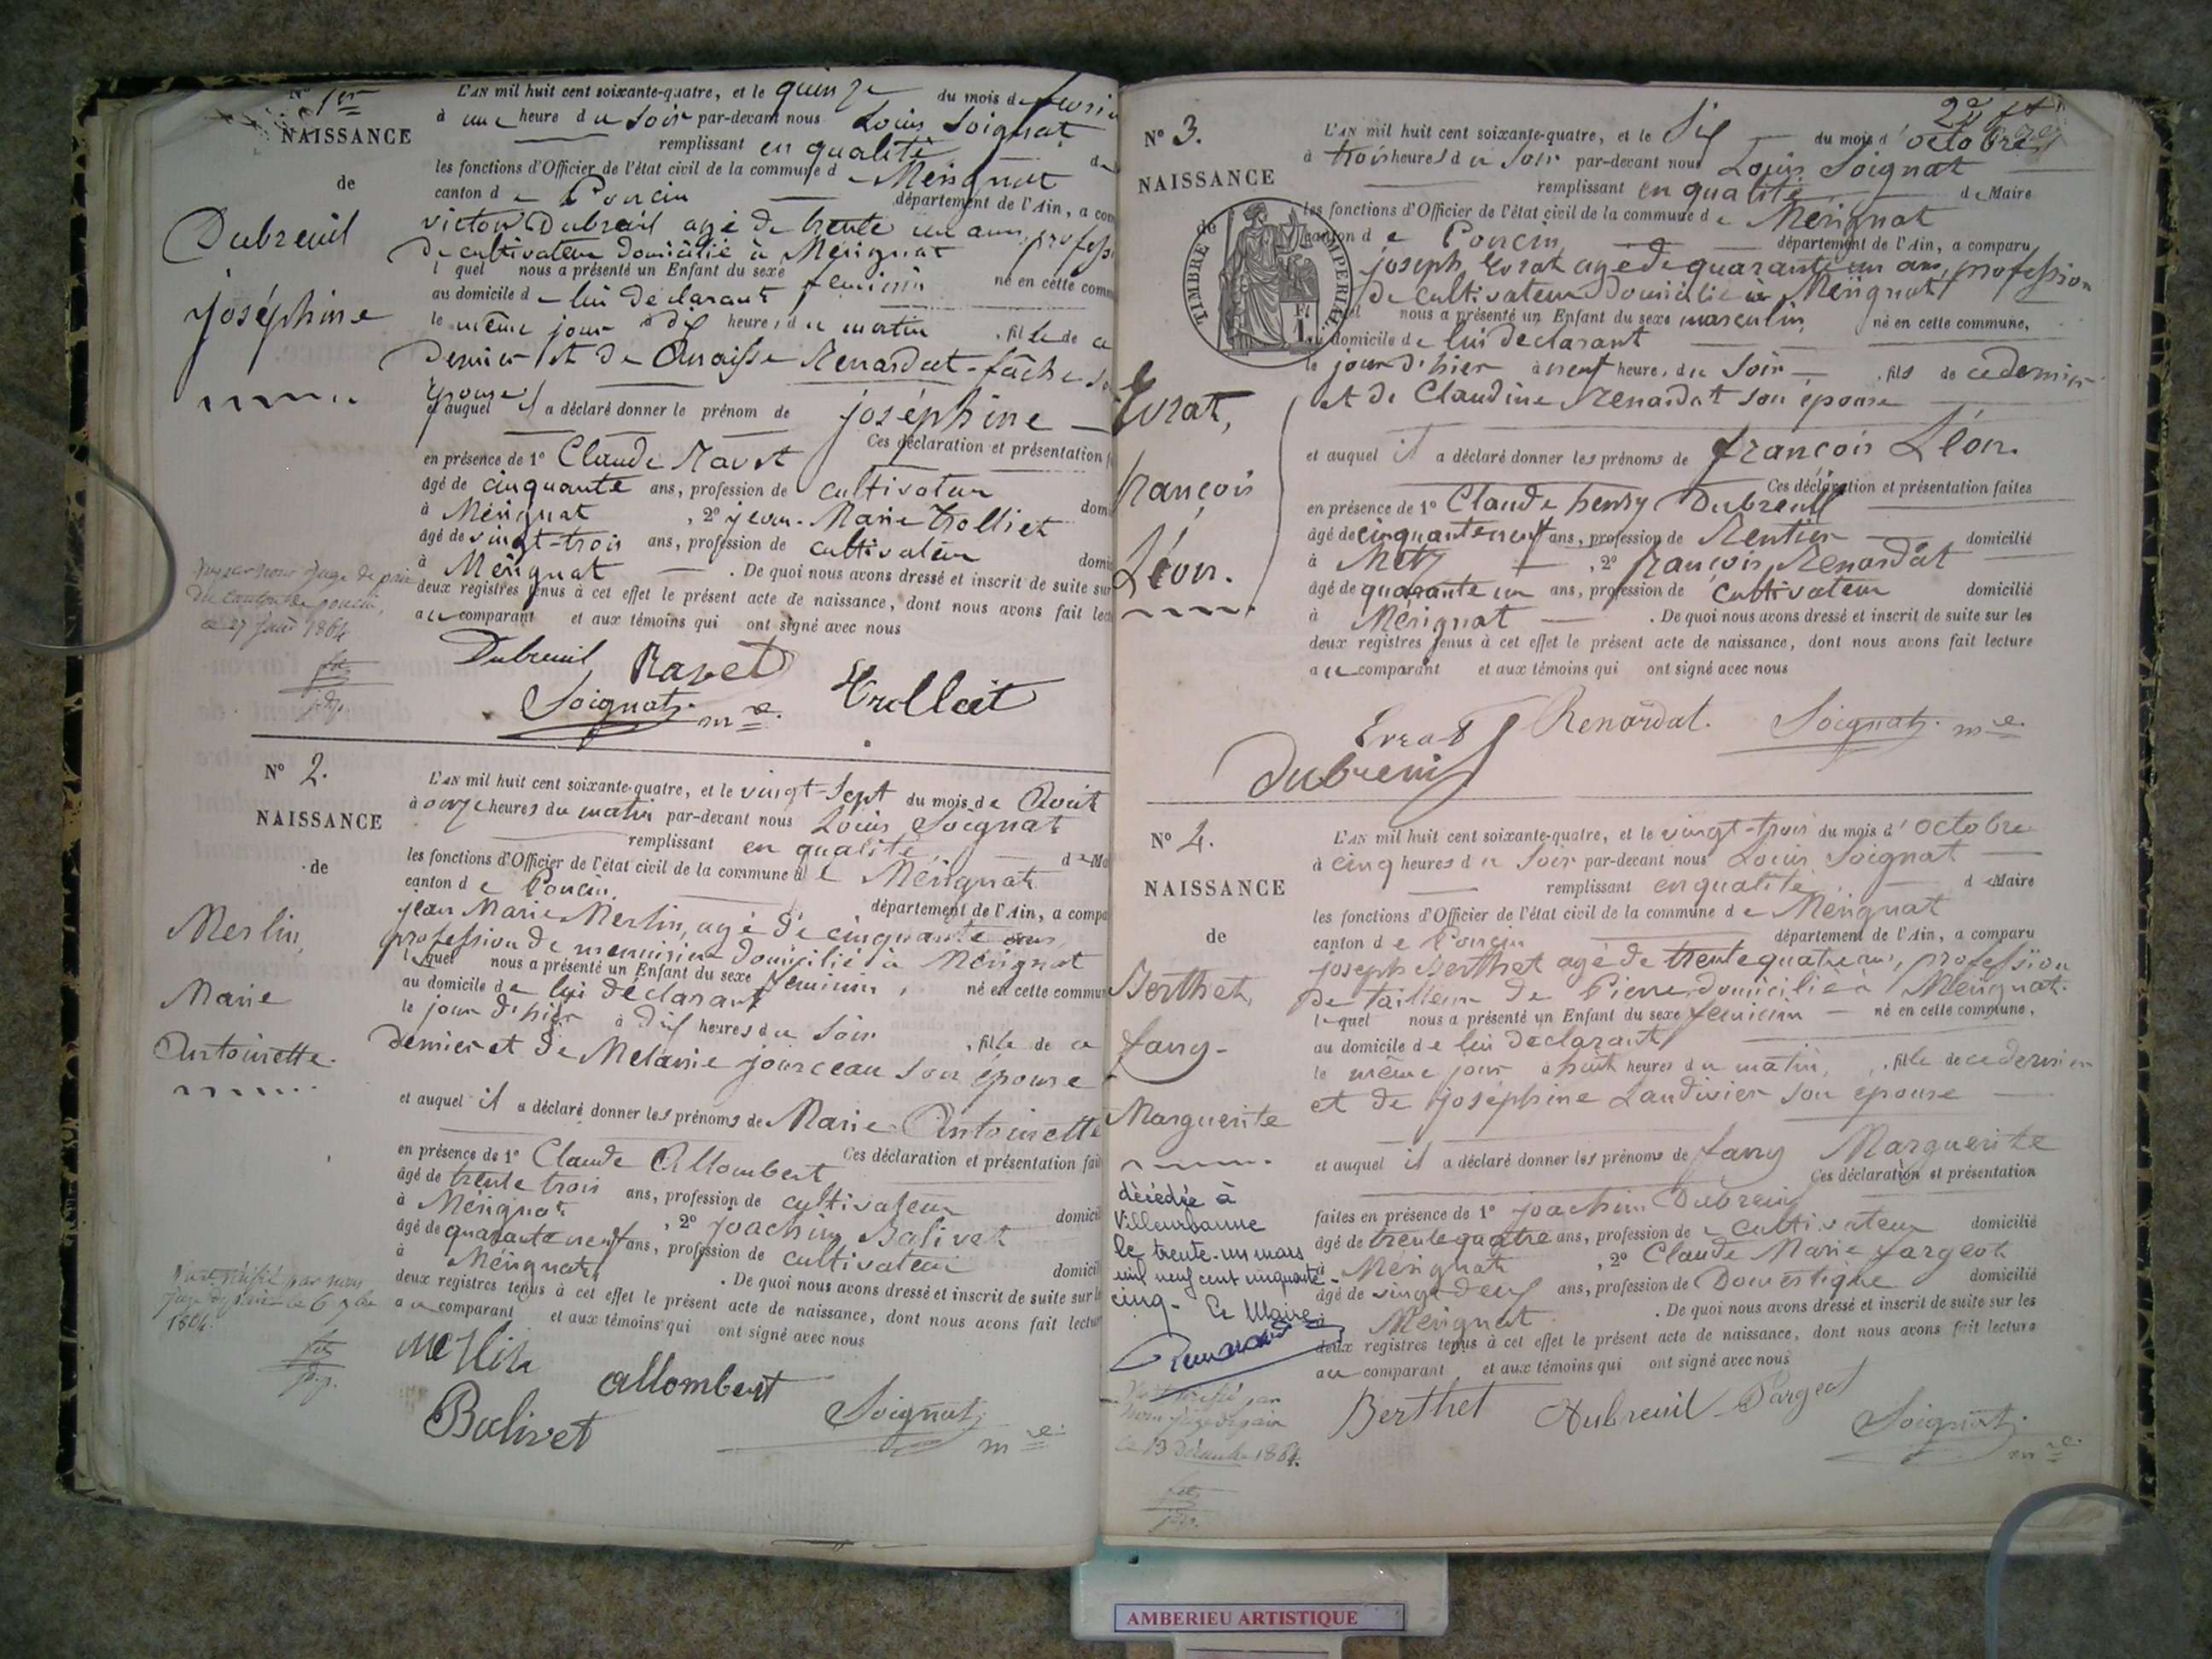 N° 1er
NAISSANCE
de
Dubreuil
joséphine
L'AN mil huit cent soixante-quatre, et le quinze du mois de
à une heure du soir par-devant nous Louis Soignat
remplissant en qualité
les fonctions d'Officier de l'état civil de la commune d Mérignat
canton de Poncin département de l'Ain, a com
victor Dubreuil agé de trente un ans, profess
de cultivateur domicilié à Mérignat
lequel nous a présenté un Enfant du sexe feminin né en cette comm
au domicile de lui déclarant
le même jour à dix heures du matin, fille de ce
dernier et de Renardat-fâche
épouse
et auquel il a déclaré donner le prénom de joséphine
Ces déclaration et présentation
en présence de 1° Claude Ravet
âgé de cinquante ans, profession de cultivateur
à Mérignat, 2° jean-Marie trolliet
âgé de vingt-trois ans, profession de cultivateur
à Mérignat. De quoi nous avons dressé et inscrit de suite sur
deux registres tenus à cet effet le présent acte de naissance, dont nous avons fait lec
au comparant et aux témoins qui ont signé avec nous
Dubreuil Ravet
Soignat me. Trolliet
N° 2.
NAISSANCE
de
Merlin,
Marie
Antoinette.
L'AN mil huit cent soixante-quatre, et le vingt-sept du mois de Août
à onze heures du matin par-devant nous Louis Soignat
remplissant en qualité
les fonctions d'Officier de l'état civil de la commune de Mérignat
canton de Poncin département de l'Ain, a compa
jean Marie Merlin, agé de cinquante ans
profession de menuisier domicilié à Mérignat
lequel nous a présenté un Enfant du sexe feminin, né en cette commun
au domicile de lui déclarant
le jour d'hier à dix heures du soir, fille de ce
dernier et de Melanie jourceau son épouse
et auquel il a déclaré donner les prénoms de Marie Antoinette
Ces déclaration et présentation fai
en présence de 1° Claude Allombert
âgé de trente trois ans, profession de cultivateur
à Mérignat, 2° joachim Balivet
âgé de quarante neuf ans, profession de cultivateur
à Mérignat. De quoi nous avons dressé et inscrit de suite sur
deux registres tenus à cet effet le présent acte de naissance, dont nous avons fait lectur
au comparant et aux témoins qui ont signé avec nous
Merlin Allombert
Balivet Soignat me.
N° 3.
NAISSANCE
de
TIMBRE IMPERIAL
Evrat,
françois
Léon.
L'AN mil huit cent soixante-quatre, et le dix du mois d'octobre
à trois heures du soir par-devant nous Louis Soignat
remplissant en qualité de Maire
les fonctions d'Officier de l'état civil de la commune de Mérignat
canton de Poncin département de l'Ain, a comparu
joseph Evrat agé de quarante un ans, profession
de cultivateur domicilié à Mérignat
lequel nous a présenté un Enfant du sexe masculin, né en cette commune,
au domicile de lui déclarant
le jour d'hier à neuf heures du soir, fils de ce dernier
et de Claudine Renardat son épouse
et auquel il a déclaré donner les prénoms de françois Léon.
Ces déclaration et présentation faites
en présence de 1° Claude henry Dubreuil
âgé de cinquante neuf ans, profession de Rentier domicilié
à Metz, 2° françois Renardat
âgé de quarante un ans, profession de cultivateur domicilié
à Mérignat. De quoi nous avons dressé et inscrit de suite sur les
deux registres tenus à cet effet le présent acte de naissance, dont nous avons fait lecture
au comparant et aux témoins qui ont signé avec nous
Evrat Renardat. Soignat. me.
Dubreuil
N° 4.
NAISSANCE
de
Berthet,
fany-
Marguerite
décédée à
Villeurbanne
le trente-un mars
mil neuf cent cinquante-
cinq. Le Maire,
L'AN mil huit cent soixante-quatre, et le vingt-trois du mois d'octobre
à cinq heures du soir par-devant nous Louis Soignat
remplissant en qualité de Maire
les fonctions d'Officier de l'état civil de la commune de Mérignat
canton de Poncin département de l'Ain, a comparu
joseph Berthet agé de trente quatre ans, profession
de tailleur de Pierre, domicilié à Mérignat.
lequel nous a présenté un Enfant du sexe feminin né en cette commune,
au domicile de lui déclarant
le même jour à huit heures du matin, fille de ce dernier
et de joséphine Landivier son épouse
et auquel il a déclaré donner les prénoms de fany Marguerite
Ces déclaration et présentation
faites en présence de 1° joachim Dubreuil
âgé de trente quatre ans, profession de cultivateur domicilié
à Mérignat, 2° Claude Marie fargeot
âgé de vingt-deux ans, profession de Domestique domicilié
Mérignat. De quoi nous avons dressé et inscrit de suite sur les
deux registres tenus à cet effet le présent acte de naissance, dont nous avons fait lecture
au comparant et aux témoins qui ont signé avec nous
Berthet Dubreuil Soignat. me.
AMBERIEU ARTISTIQUE